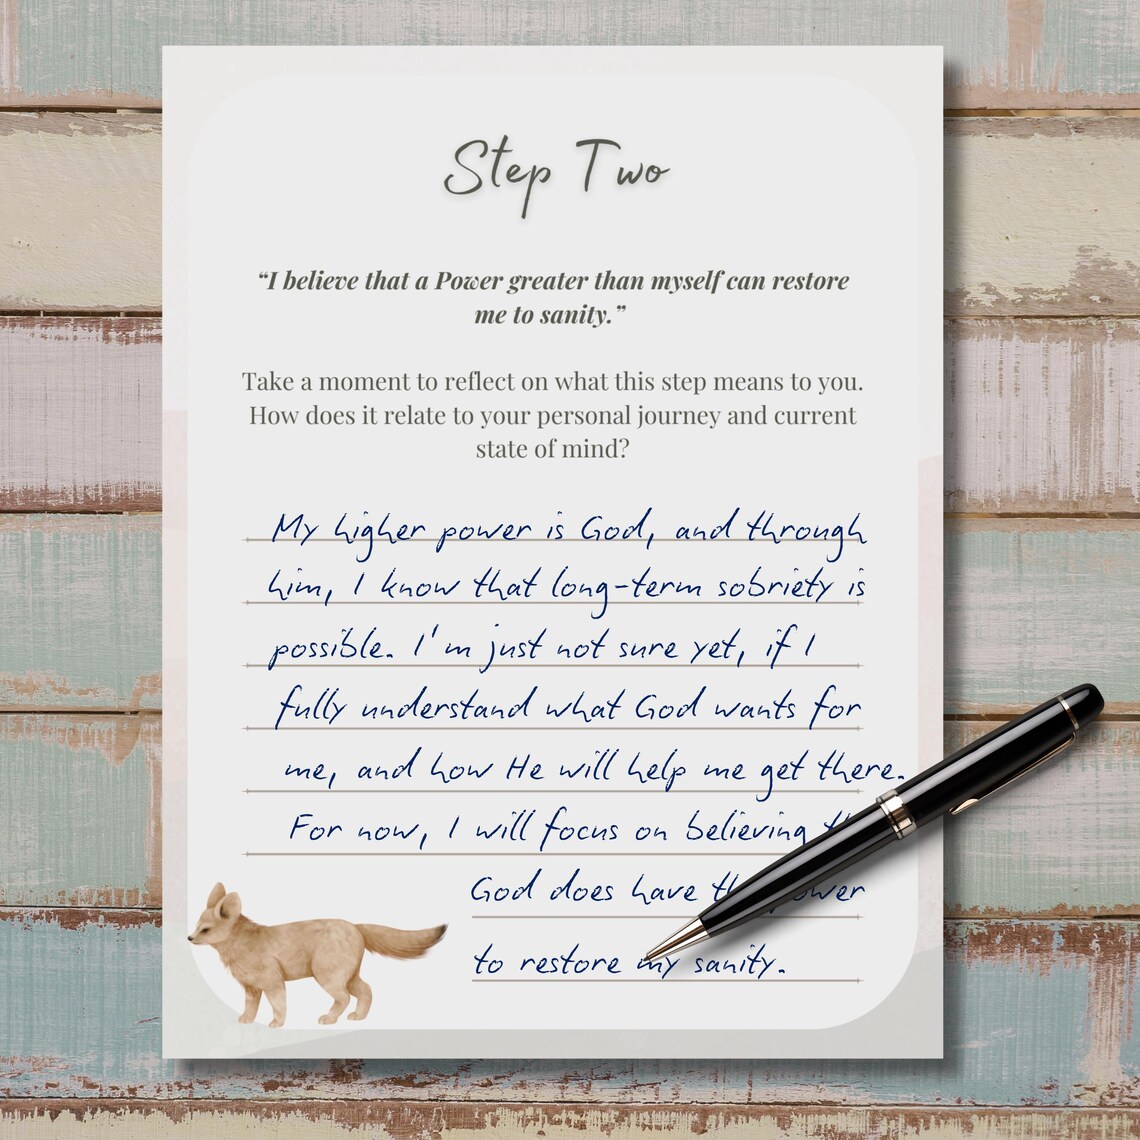 Step Two
“I believe that a Power greater than myself can restore
me to sanity.”
Take a moment to reflect on what this step means to you.
How does it relate to your personal journey and current
state of mind?
My higher power is God, and through
him, I know that long-term sobriety is
possible. I'm just not sure yet, if I
fully understand what God wants for
me, and how He will help me get there.
For now, I will focus on believing
God does have
to restore my sanity.